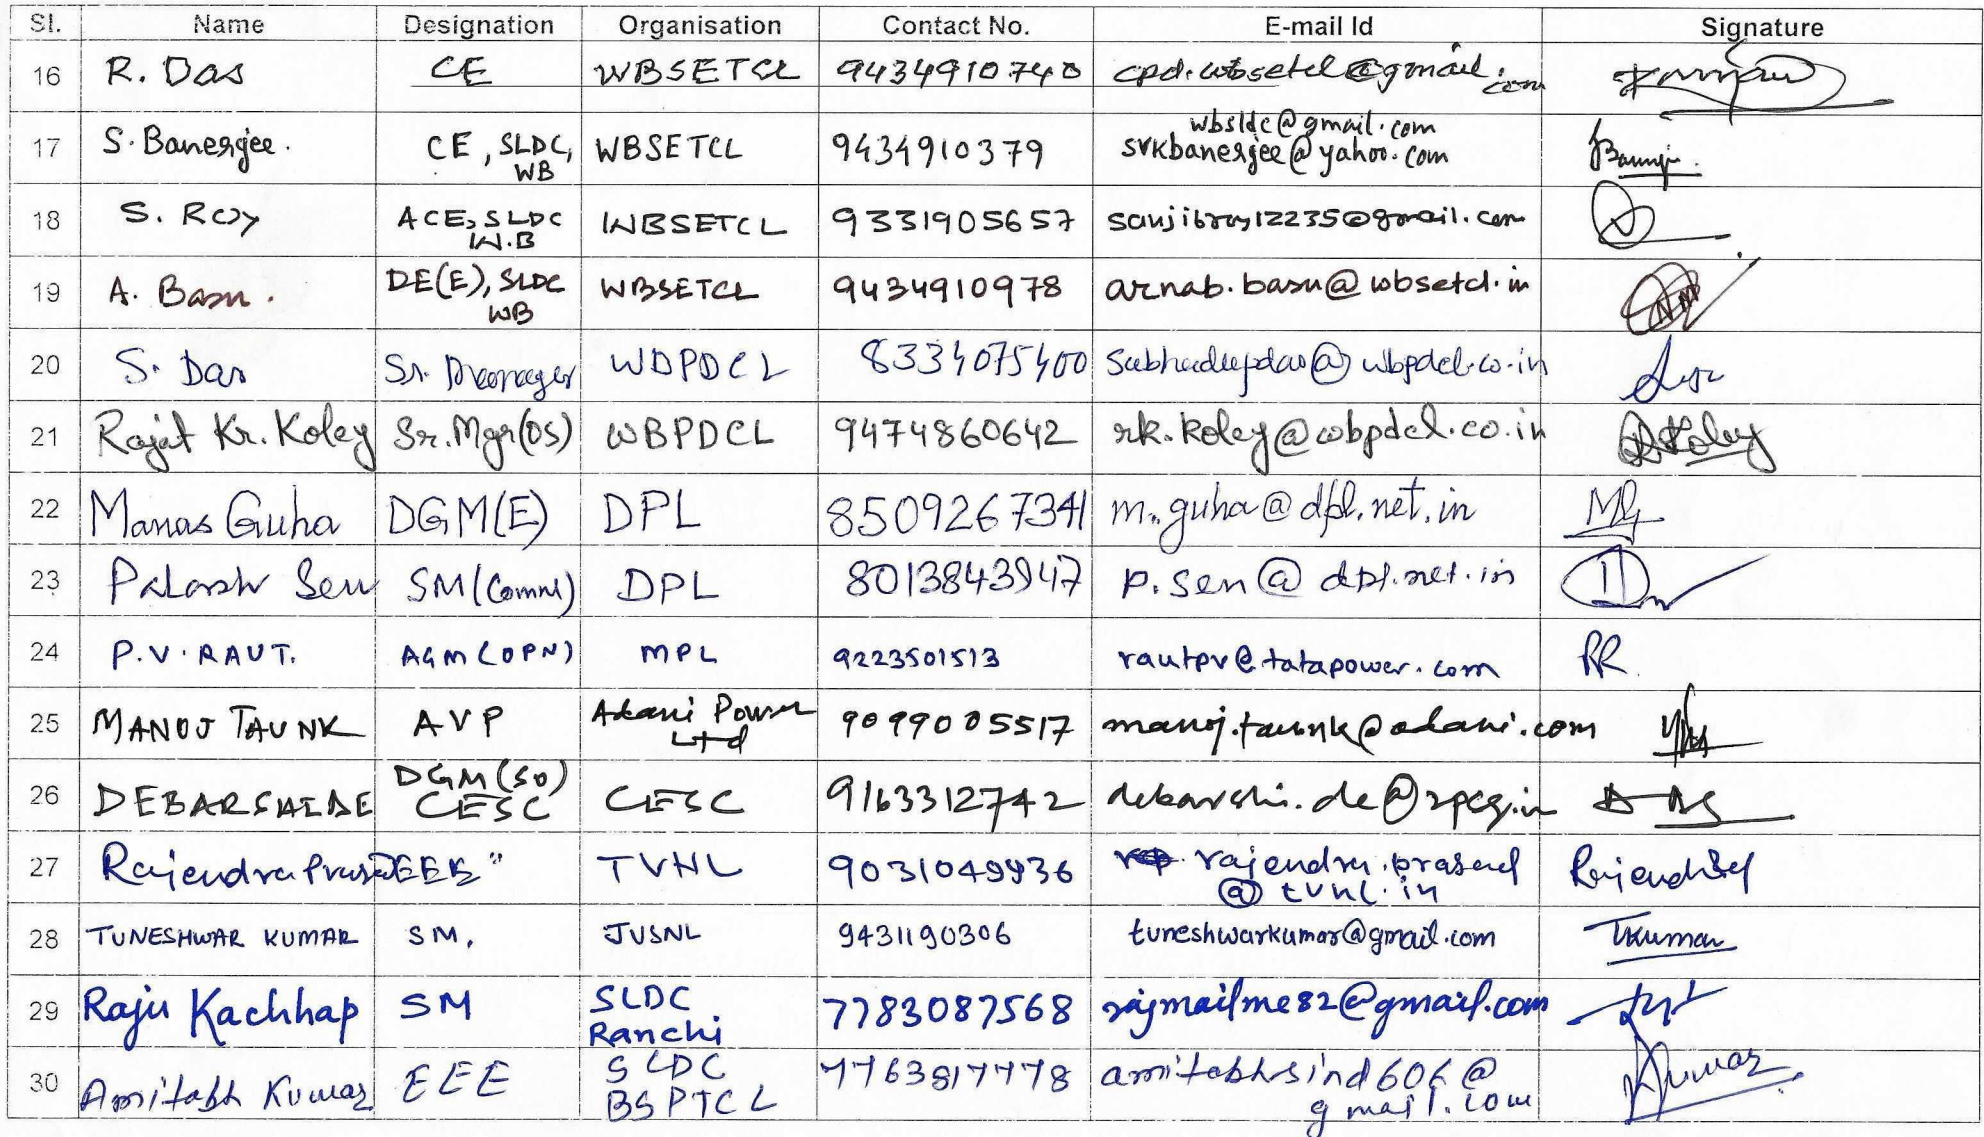 Sl. Name Designation Organisation Contact No. E-mail Id Signature
16 R. Das CE WBSETCL 9434910740 cpd.wbsetcl@gmail.com
17 S. Banerjee. CE, SLDC, WB WBSETCL 9434910379 wbsldc@gmail.com svkbanerjee@yahoo.com
18 S. Roy ACE, SLDC W.B WBSETCL 9331905657 sanjibroy12235@gmail.com
19 A. Basu. DE(E), SLDC WB WBSETCL 9434910978 arnab.basu@wbsetcl.in
20 S. Das Sr. Manager WBPDCL 8334075400 subhadeepdas@wbpdcl.co.in
21 Rajat Kr. Koley Sr. Mgr(OS) WBPDCL 9474860642 rk.koley@wbpdcl.co.in
22 Manas Guha DGM(E) DPL 8509267341 m.guha@dpl.net.in
23 Palash Sen SM(Comml) DPL 8013843947 p.sen@dpl.net.in
24 P.V. RAUT. AGM (OPN) MPL 9223501513 rautpv@tatapower.com
25 MANOJ TAUNK AVP Adani Power Ltd 9099005517 manoj.taunk@adani.com
26 DEBARSHI DE DGM(SO) CESC CESC 9163312742 debarshi.de@rpsg.in
27 Rajendra Prasad EEE" TVNL rajendra.prasad@tvnl.in
28 TUNESHWAR KUMAR SM, JUSNL 9431190306 tuneshwarkumar@gmail.com TKumar
29 Raju Kachhap SM SLDC Ranchi 7783087568 rajmailme82@gmail.com
30 Amitabh Kumar EEE SLDC BSPTCL 7763817778 amitabhsind606@gmail.com